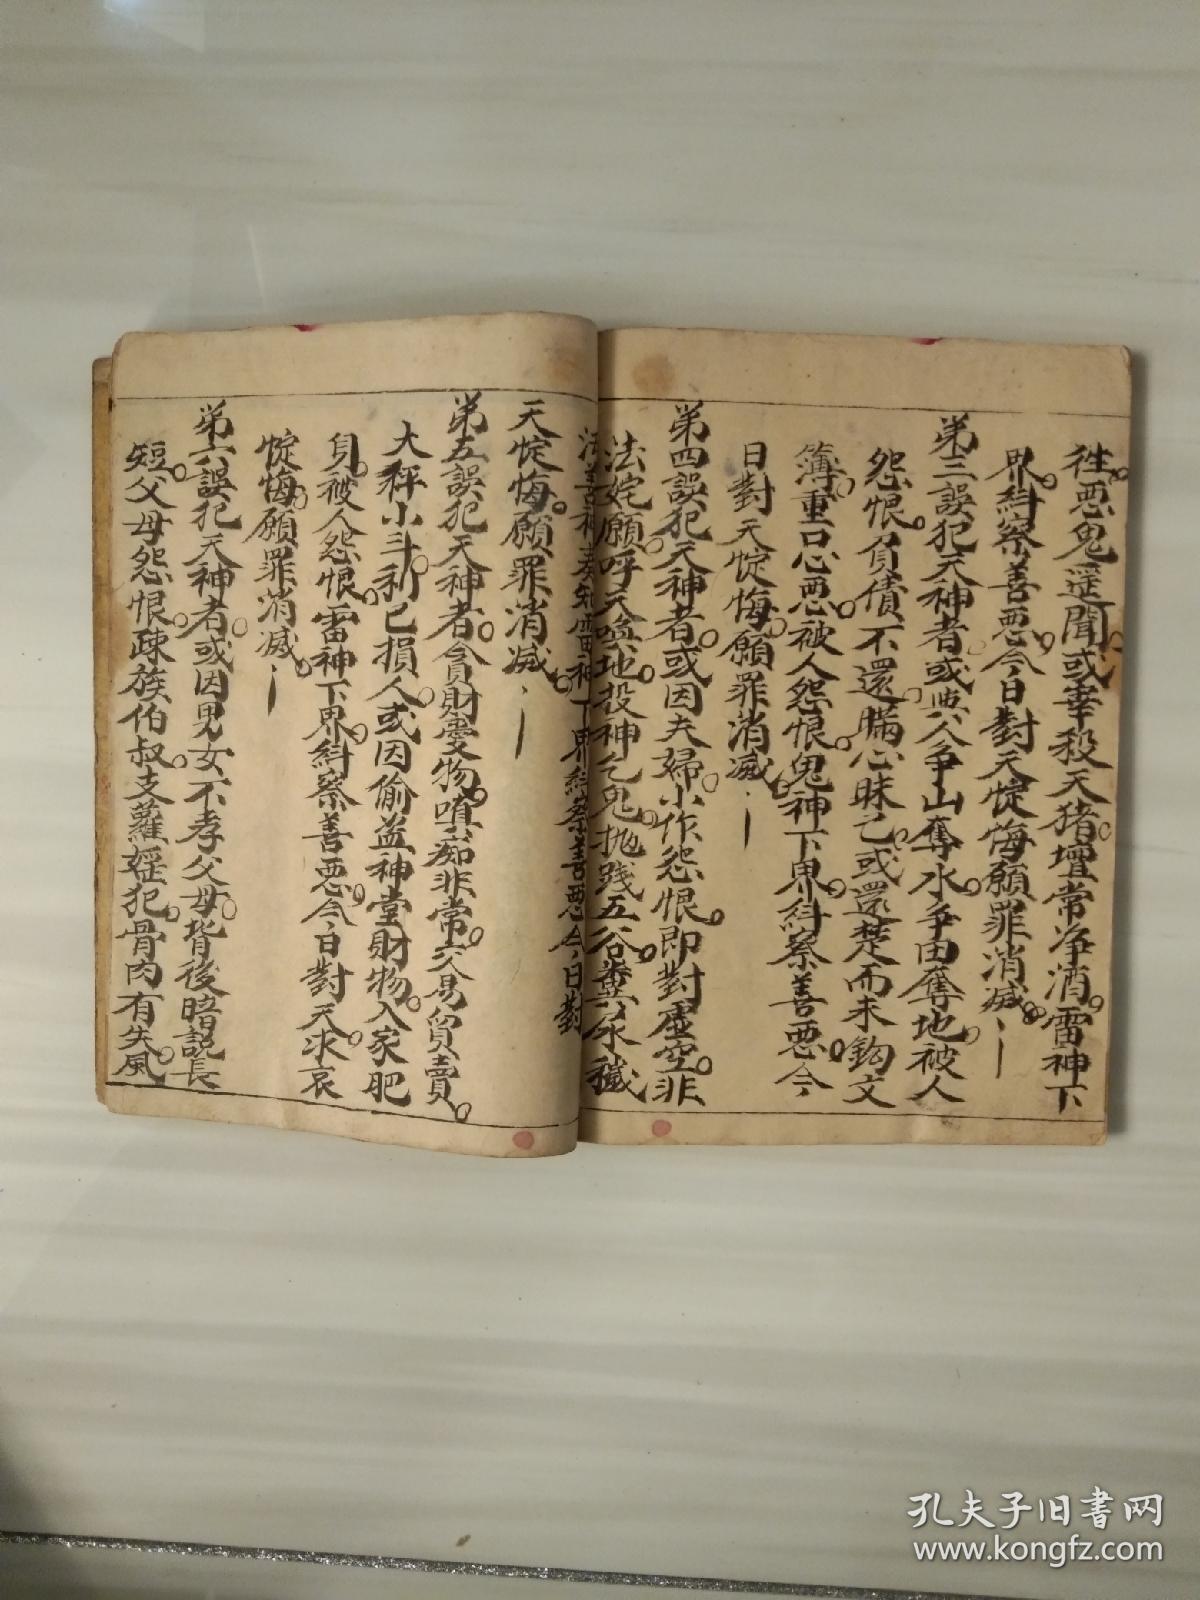 徃。惡鬼遥聞。或宰殺天猪。壇常净酒。雷神下
界。糾察善惡。今日對天懺悔。願罪消滅。
第三誤犯天神者。或與人争山奪水。争田奪地。被人
怨恨。負債不還。瞞心昧己。或還楚而未鈎文
簿。重口心惡。被人怨恨。鬼神下界。糾察善惡。今
日對天懺悔。願罪消滅。
第四誤犯天神者。或因夫婦。小作怨恨。即對虛空。非
法姹願。呼天喚地。投神乞鬼。抛踐五谷。糞尿穢
法善神奏知雷神下界糾察善惡今日對
天懺悔。願罪消滅。
第五誤犯天神者。貪財愛物。嗔痴非常。交易買賣。
大秤小斗。利己損人。或因偷盗神堂財物。入家肥
身。被人怨恨。雷神下界。糾察善惡。今日對天。求哀
懺悔。願罪消滅。
第六誤犯天神者。或因男女。不孝父母。背後暗説長
短。父母怨恨。疎族伯叔。支蘿婬犯。骨肉有失風
孔夫子旧书网
www.kongfz.com